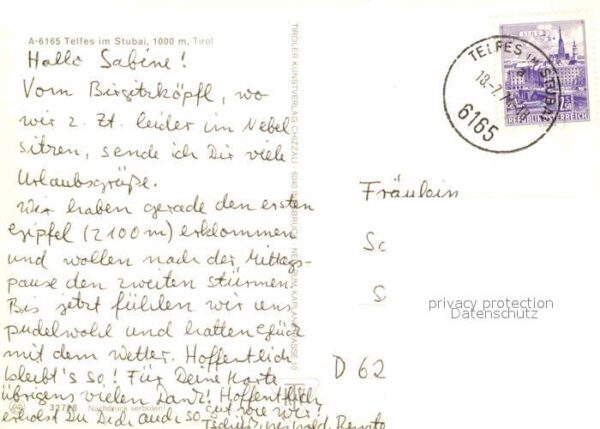 A-6165 Telfes im Stubai, 1000 m, Tirol
Hallo Sabine!
Vom Birgitzköpfl, wo
wir z. Zt. leider im Nebel
sitzen, sende ich Dir viele
Urlaubsgrüße.
Wir haben gerade den ersten
Gipfel (2100 m) erklommen
und wollen nach der Mittags-
pause den zweiten stürmen.
Bis jetzt fühlen wir uns
pudelwohl und hatten Glück
mit dem Wetter. Hoffentlich
bleibt's so! Für Deine Karte
übrigens vielen Dank! Hoffentlich
erholst Du Dich auch so gut wie wir!
Tschüs, Renate
32723 Nachdruck verboten!
TIROLER KUNSTVERLAG CHIZZALI
INNSBRUCK
TELFES IM STUBAI
18.-7.
6165
REPUBLIK ÖSTERREICH
Fräulein
S
S
D 62
privacy protection
Datenschutz